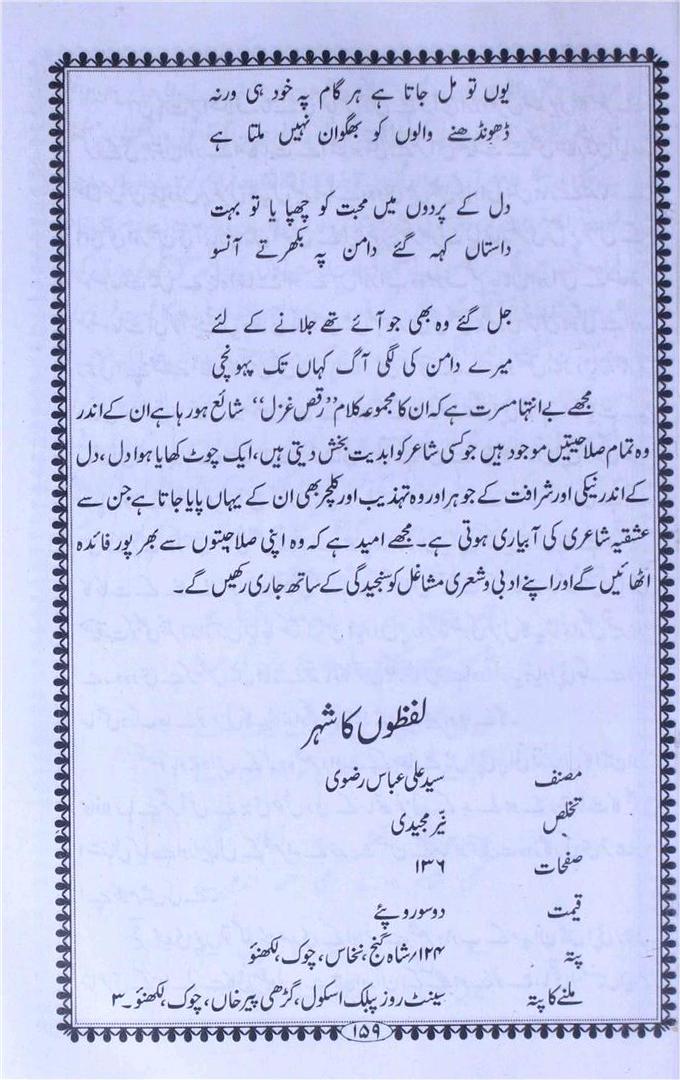 یوں تو مل جاتا ہے ہر گام پہ خود ہی ورنہ
ڈھونڈھنے والوں کو بھگوان نہیں ملتا ہے
دل کے پردوں میں محبت کو چھپا یا تو بہت
داستاں کہہ گئے دامن پہ بکھرتے آنسو
جل گئے وہ بھی جو آئے تھے جلانے کے لئے
میرے دامن کی لگی آگ کہاں تک پہونچی
مجھے بے انتہا مسرت ہے کہ ان کا مجموعہ کلام ”رقص غزل“ شائع ہورہا ہے ان کے اندر
وہ تمام صلاحیتیں موجود ہیں جو کسی شاعر کو ابدیت بخش دیتی ہیں، ایک چوٹ کھایا ہوا دل، دل
کے اندر نیکی اور شرافت کے جوہر اور وہ تہذیب اور کلچر بھی ان کے یہاں پایا جاتا ہے جن سے
عشقیہ شاعری کی آبیاری ہوتی ہے۔ مجھے امید ہے کہ وہ اپنی صلاحیتوں سے بھر پور فائدہ
اٹھائیں گے اور اپنے ادبی و شعری مشاغل کو سنجیدگی کے ساتھ جاری رکھیں گے۔
لفظوں کا شہر
مصنف سید علی عباس رضوی
تخلص نیّر مجیدی
صفحات ۱۳۶
قیمت دو سو روپئے
پتہ ۱۲۴/شاہ گنج، نخاس، چوک، لکھنؤ
ملنے کا پتہ سینٹ روز پبلک اسکول، گڑھی پیر خاں، چوک، لکھنؤ۔۳
۱۵۹